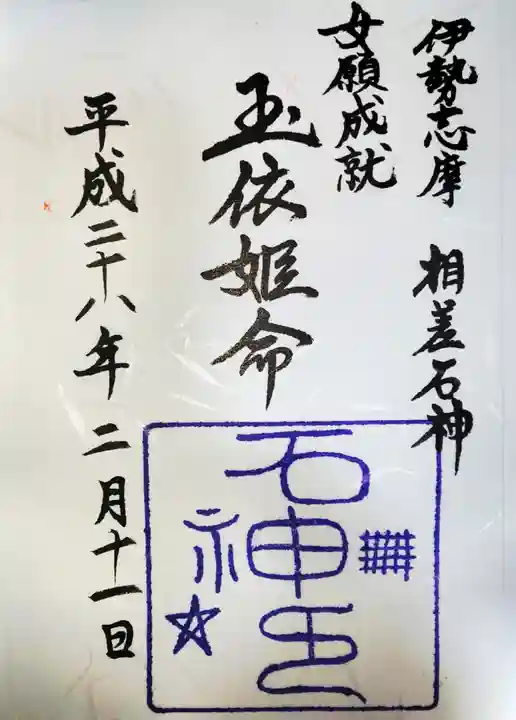 伊勢志摩 相差石神
女願成就
玉依姫命
平成二十八年 二月十一日
石神印